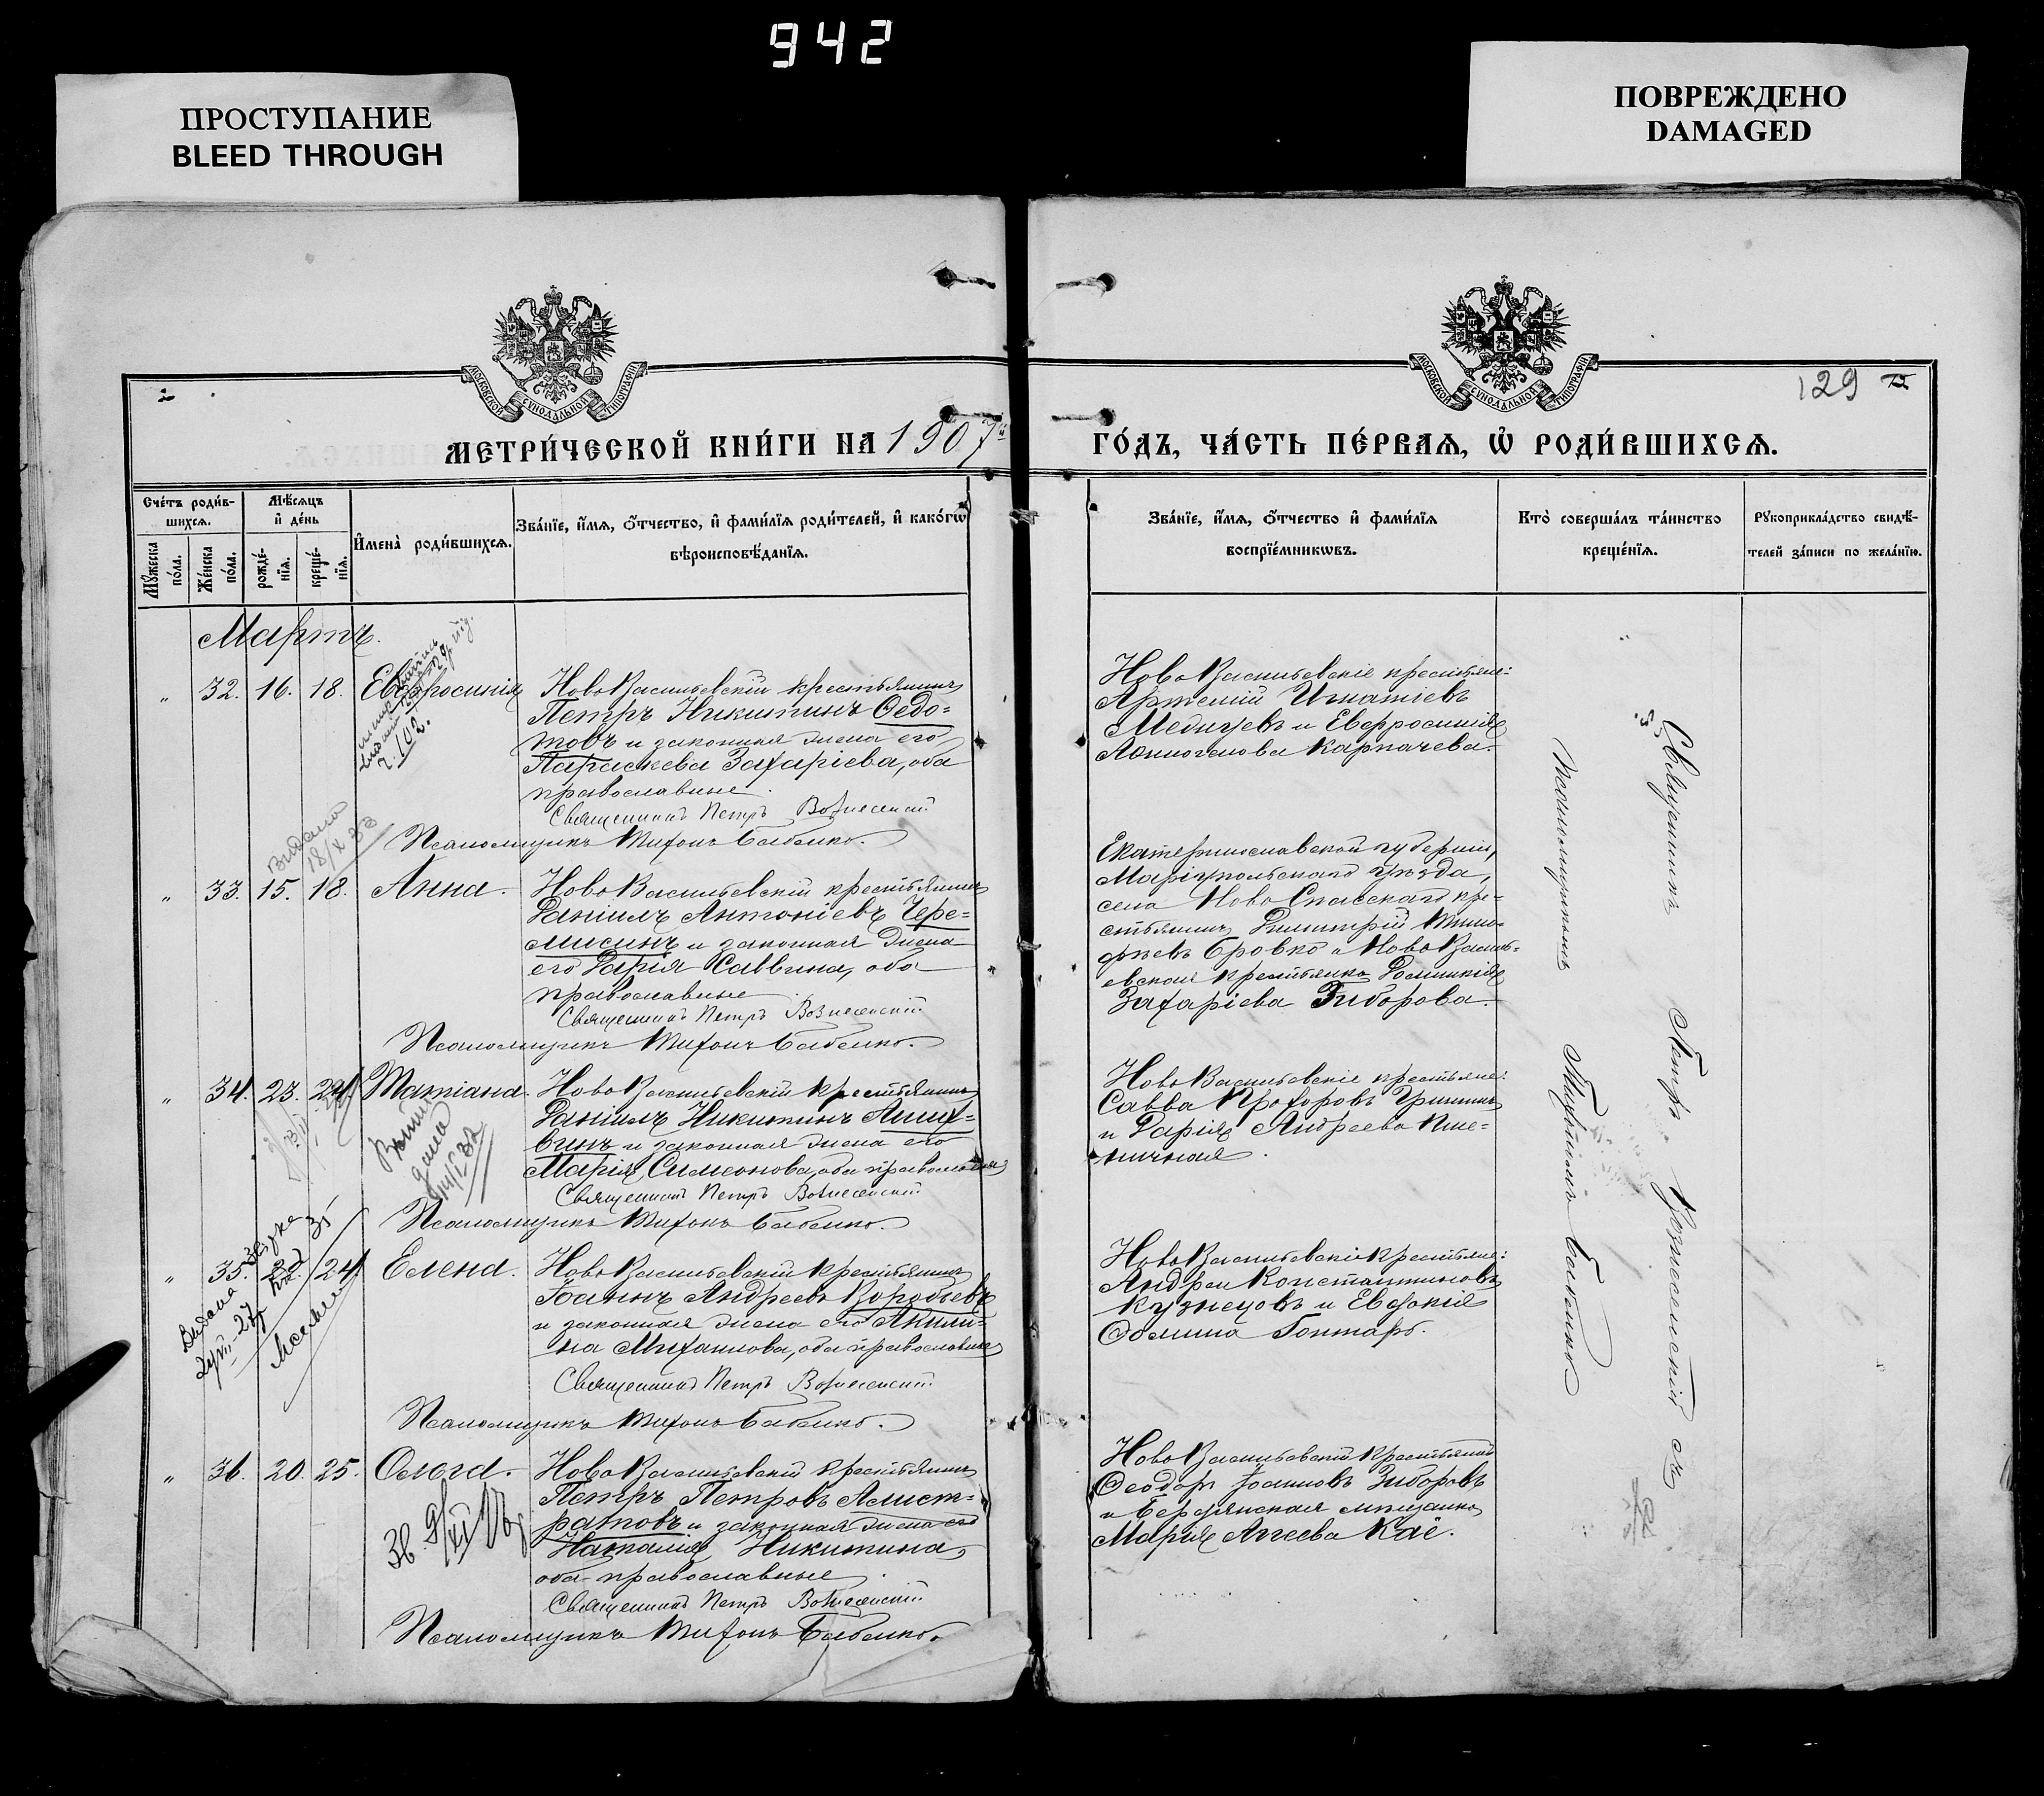 942
ПРОСТУПАНИЕ
BLEED THROUGH
ПОВРЕЖДЕНО
DAMAGED
МОСКОВСКОЙ СѴНОДАЛЬНОЙ ТИПОГРАФІИ
МОСКОВСКОЙ СѴНОДАЛЬНОЙ ТИПОГРАФІИ
129
МЕТРИ́ЧЕСКОЙ КНИ́ГИ НА 1907й
ГО́ДЪ, ЧА́СТЬ ПЕ́РВАѦ, Ѡ҆ РОДИ́ВШИХСѦ.
Сче́тъ роди́в-
шихсѧ.
Мꙋ́жеска
по́ла.
Же́нска
по́ла.
Мѣ́сѧцъ
и҆ де́нь
рожде́-
нїѧ.
креще́-
нїѧ.
И҆мена̀ роди́вшихсѧ.
Зва́нїе, и҆́мѧ, ѻ҆́тчество, и҆ фами́лїѧ роди́телей, и҆ како́гѡ
вѣроисповѣ́данїѧ.
Зва́нїе, и҆́мѧ, ѻ҆́тчество и҆ фами́лїѧ
воспрїе́мникѡвъ.
Кто̀ соверша́лъ та́инство
креще́нїѧ.
Рꙋкоприкла́дство свидѣ́-
телей за́писи по жела́нїю.
Мартъ.
" 32. 16. 18. Евфросинія
НовоВасильевскій крестьянинъ
Петръ Никитинъ Ѳедо-
товъ и законная жена его
Параскева Захаріева, оба
православные
Священникъ Петръ Вознесенскій
Псаломщикъ Тихонъ Бабенко.
НовоВасильевскіе крестьяне:
Артемій Игнатіевъ
и Евфросинія
Карпачева.
Видано
18/X 33
" 33. 15. 18. Анна.
НовоВасильевскій крестьянинъ
Даніилъ Антоніевъ Чере-
мисинъ и законная жена
его Дарія Саввина, оба
православные
Священникъ Петръ Вознесенскій
Псаломщикъ Тихонъ Бабенко.
Екатеринославской губерніи,
Маріупольскаго уѣзда,
села НовоСпасскаго кре-
стьянинъ Димитрій Тимо-
фѣевъ Бровко и НовоВасиль-
евская крестьянка Домникія
Захаріева Зиборова.
" 34. 23. 24. Татіана.
НовоВасильевскій крестьянинъ
Даніилъ Никитинъ
и законная жена его
Марія Симеонова, оба православные
Священникъ Петръ Вознесенскій
Псаломщикъ Тихонъ Бабенко.
НовоВасильевскіе крестьяне:
Савва Прохоровъ Гришинъ
и Дарія Андреева Пше-
ничная.
" 35. 24. Елена.
НовоВасильевскій крестьянинъ
Іоаннъ Андреевъ Воробьевъ
и законная жена его Акили-
на Михаилова, оба православные
Священникъ Петръ Вознесенскій
Псаломщикъ Тихонъ Бабенко.
НовоВасильевскіе крестьяне:
Андрей Константиновъ
Кузнецовъ и Евдокія
Ѳомина Гонтарь.
" 36. 20. 25. Ольга.
НовоВасильевскій крестьянинъ
Петръ Петровъ Алист-
ратовъ и законная жена его
Наталія Никитина,
оба православные
Священникъ Петръ Вознесенскій
Псаломщикъ Тихонъ Бабенко.
НовоВасильевскій крестьянинъ
Ѳеодоръ Іоанновъ Зиборовъ
и Бердянская мѣщанка
Марія Аггеева Каё.
Священникъ Петръ Вознесенскій съ
псаломщикомъ Тихономъ Бабенко